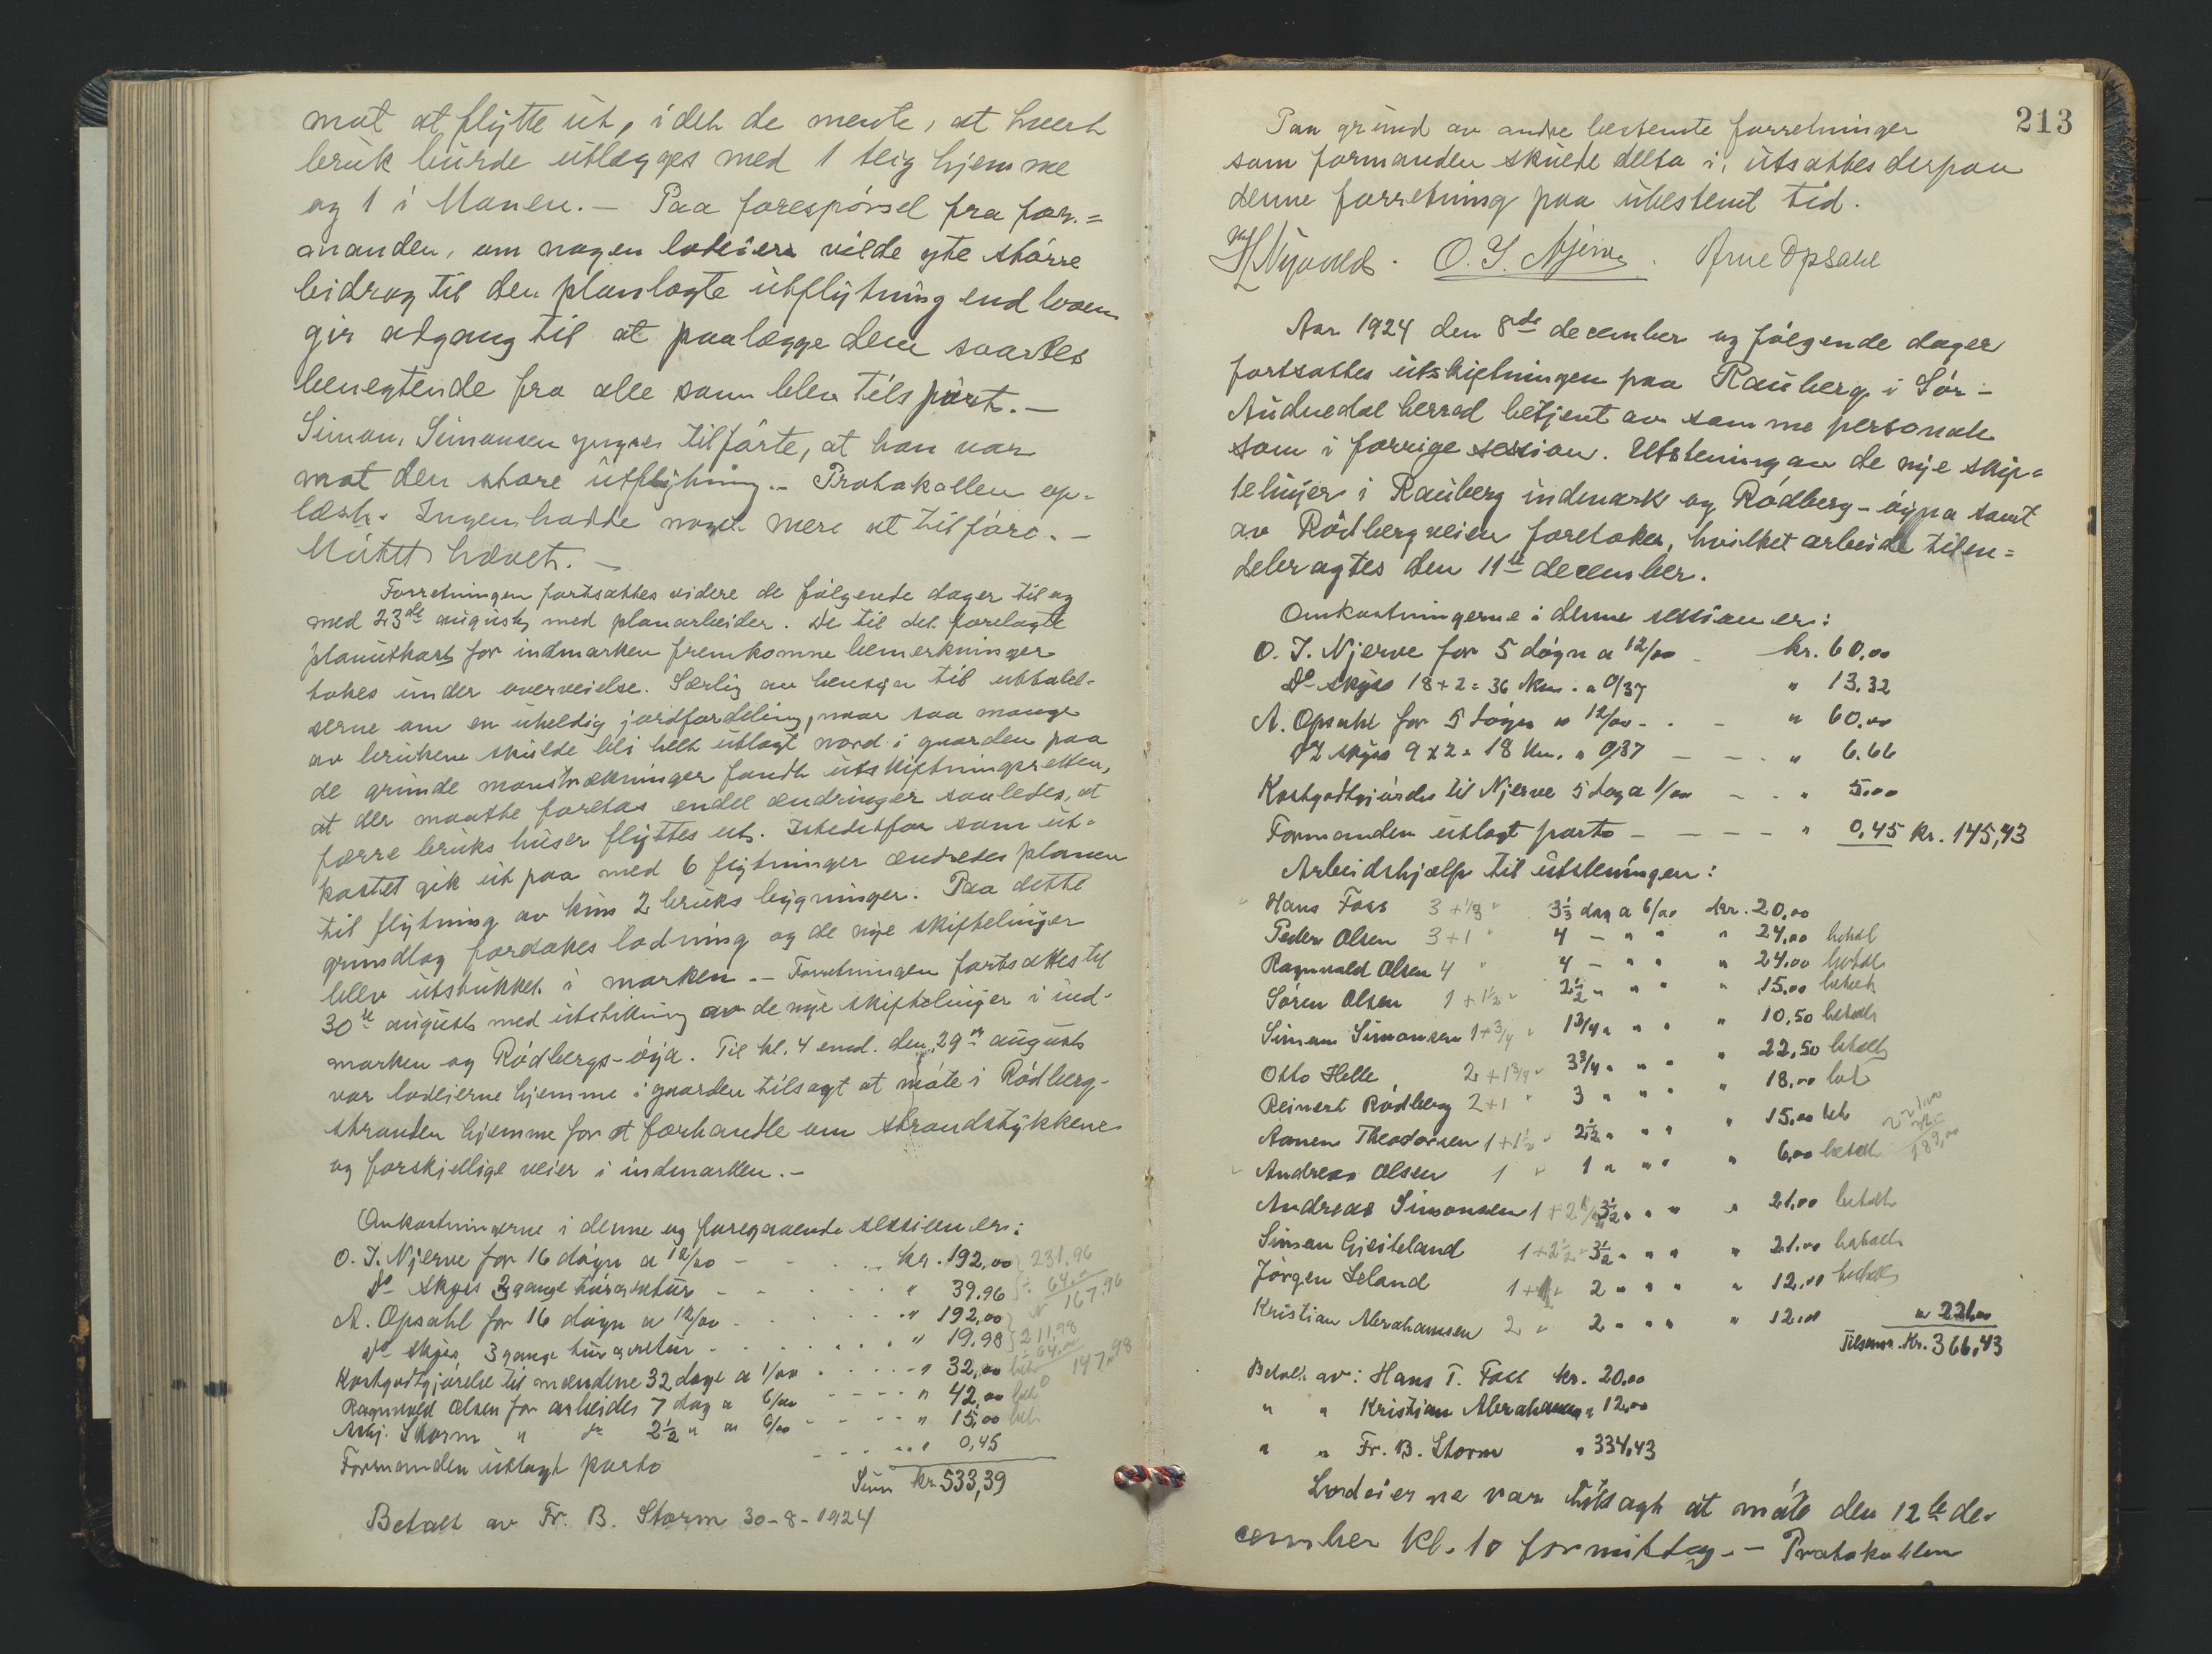 mot at flytte ut, idet de mente, at hvert
bruk burde utlægges med 1 teig hjemme
og 1 i Monen. – Paa forespørsel fra for=
manden, om nogen lodeiere vilde yte större
bidrag til den planlagte utflytning end loven
gir adgang til at paalægge dem svartes
benegtende fra alle som blev tilspurt. –
Simon Simonsen yngre tilförte, at han var
mot den store utflytning. – Protokollen op-
læst. Ingen hadde noget mere at tilföre. –
Mötet hævet. –
Forretningen fortsattes videre de fölgende dager til og
med 23de august med planarbeider. De til det forelagte
planutkast for indmarken fremkomne bemerkninger
tokes under overveielse. Særlig av hensyn til uttalel-
serne om en uheldig jordfordeling, naar saa mange
av brukene skulde bli helt utlagt nord i gaarden paa
de grunde mostrækninger fandt utskiftningsretten,
at der maatte foretas endel ændringer saaledes, at
færre bruks huser flyttes ut. Istedetfor som ut-
kastet gik ut paa med 6 flytninger ændredes planen
til flytning av kun 2 bruks bygninger. Paa dette
grundlag foretokes lodning og de nye skiftelinjer
blev utstukket i marken. – Forretningen fortsattes til
30te august med utstikning av de nye skiftelinjer i ind-
marken og Rödbergs-öya. Til kl. 4 emd. den 29de august
var lodeierne hjemme i gaarden tilsagt at möte i Rödberg-
stranden hjemme for at forhandle om strandstykkene
og forskjellige veier i indmarken. –
Omkostningerne i denne og foregaaende session er:
O. J. Njerve for 16 døgn a 12/00 - - kr. 192,00 231,96
do skyss 3 gange tur og retur - - " 39,96 64,00
A. Opsahl for 16 døgn a 12/00 - - " 192,00 167,96
do skyss 3 gange tur og retur - - " 19,98 211,98
Kostgodtgjörelse til mændene 32 dage a 1/00 - - " 32,00 bet 64,00 147,98
Ragnvald Olsen for arbeide 7 dag a 6/00 - - " 42,00 bet
Asbj. Storm " do 2½ " a 6/00 - - " 15,00 bet
Formanden utlagt porto - - " 0,45
Sum kr. 533,39
Betalt av Fr. B. Storm 30-8-1924
213
Paa grund av andre bestemte forretninger
som formanden skulde delta i, utsattes derpaa
denne forretning paa ubestemt tid.
O. J. Njerve. Arne Opsahl
Aar 1924 den 8de december og fölgende dager
fortsattes utskiftningen paa Rauberg i Sör-
Audnedal herred betjent av samme personale
som i forrige session. Utstening av de nye skif=
telinjer i Rauberg indmark og Rödberg-öyna samt
av Rödbergveien foretokes, hvilket arbeide tilen=
debragtes den 11te december.
Omkostningerne i denne session er:
O. J. Njerve for 5 dögn a 12/00 - kr. 60,00
do skyss 18 + 2 = 36 km. a 0/37 " 13,32
A. Opsahl for 5 dögn a 12/00 - - - " 60,00
do skyss 9 x 2 = 18 km. a 0/37 - - - " 6.66
Kostgodtgjörelse til Njerve 5 dag a 1/00 - - " 5,00
Formanden utlagt porto - - - - " 0,45 kr. 145,43
Arbeidshjælp til utsteningen:
Hans Foss 3 + 1/3 " 3⅓ dag a 6/00 kr. 20,00
Peder Olsen 3 + 1 " 4 - " " " 24,00 betalt
Ragnvald Olsen 4 " 4 - " " " 24,00 betalt
Sören Olsen 1 + 1½ " 2½ " " " " 15,00 betalt
Simon Simonsen 1 + 3/4 " 1 3/4 " " " " 10,50 betalt
Otto Helle 2 + 1 3/4 " 3 3/4 " " " " 22,50 betalt
Reinert Rödberg 2+1 " 3 " " " " 18,00 bet
Aanen Theodorsen 1 + 1½ " 2½ " " " " 15,00 bet
Andreas Olsen 1 " 1 " " " " 6,00 betalt
221,00
32
189,00
Andreas Simonsen 1 + 2½ 3½ " " " " 21.00 betalt
Simon Gjeiteland 1 + 2½ " 3½ " " " " 21.00 betalt
Jörgen Leland 1 + 1 " 2 " " " " 12,00 betalt
Kristian Abrahamsen 2 " 2 " " " " 12,00 " 221,00
Tilsam. Kr. 366,43
Betalt av: Hans T. Foss kr. 20,00
" " Kristian Abrahamsen " 12,00
" " Fr. B. Storm " 334,43
Lodeierne var tilsagt at möte den 12te de-
cember kl. 10 formiddag. – Protokollen